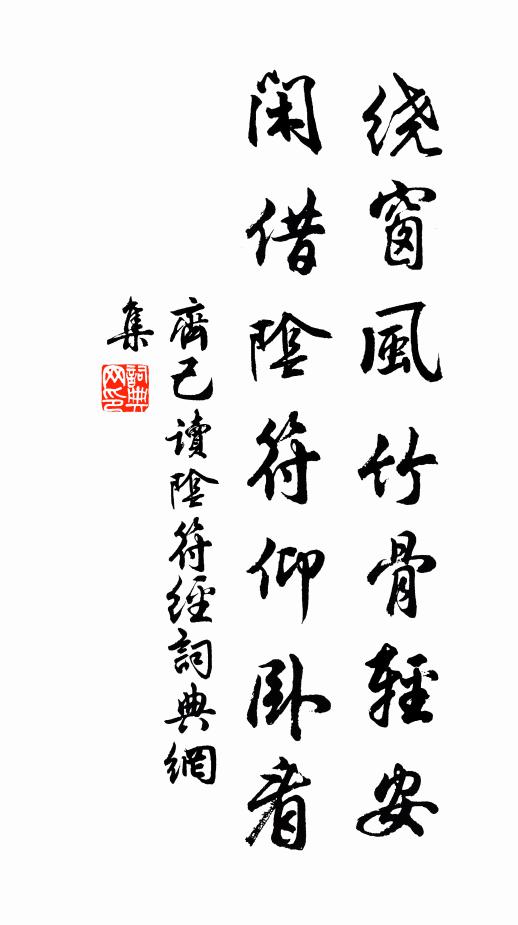 绕窗風竹骨輕安
閑借陰符仰卧看
齊己讀陰符經詞典網
集
詞典
网印